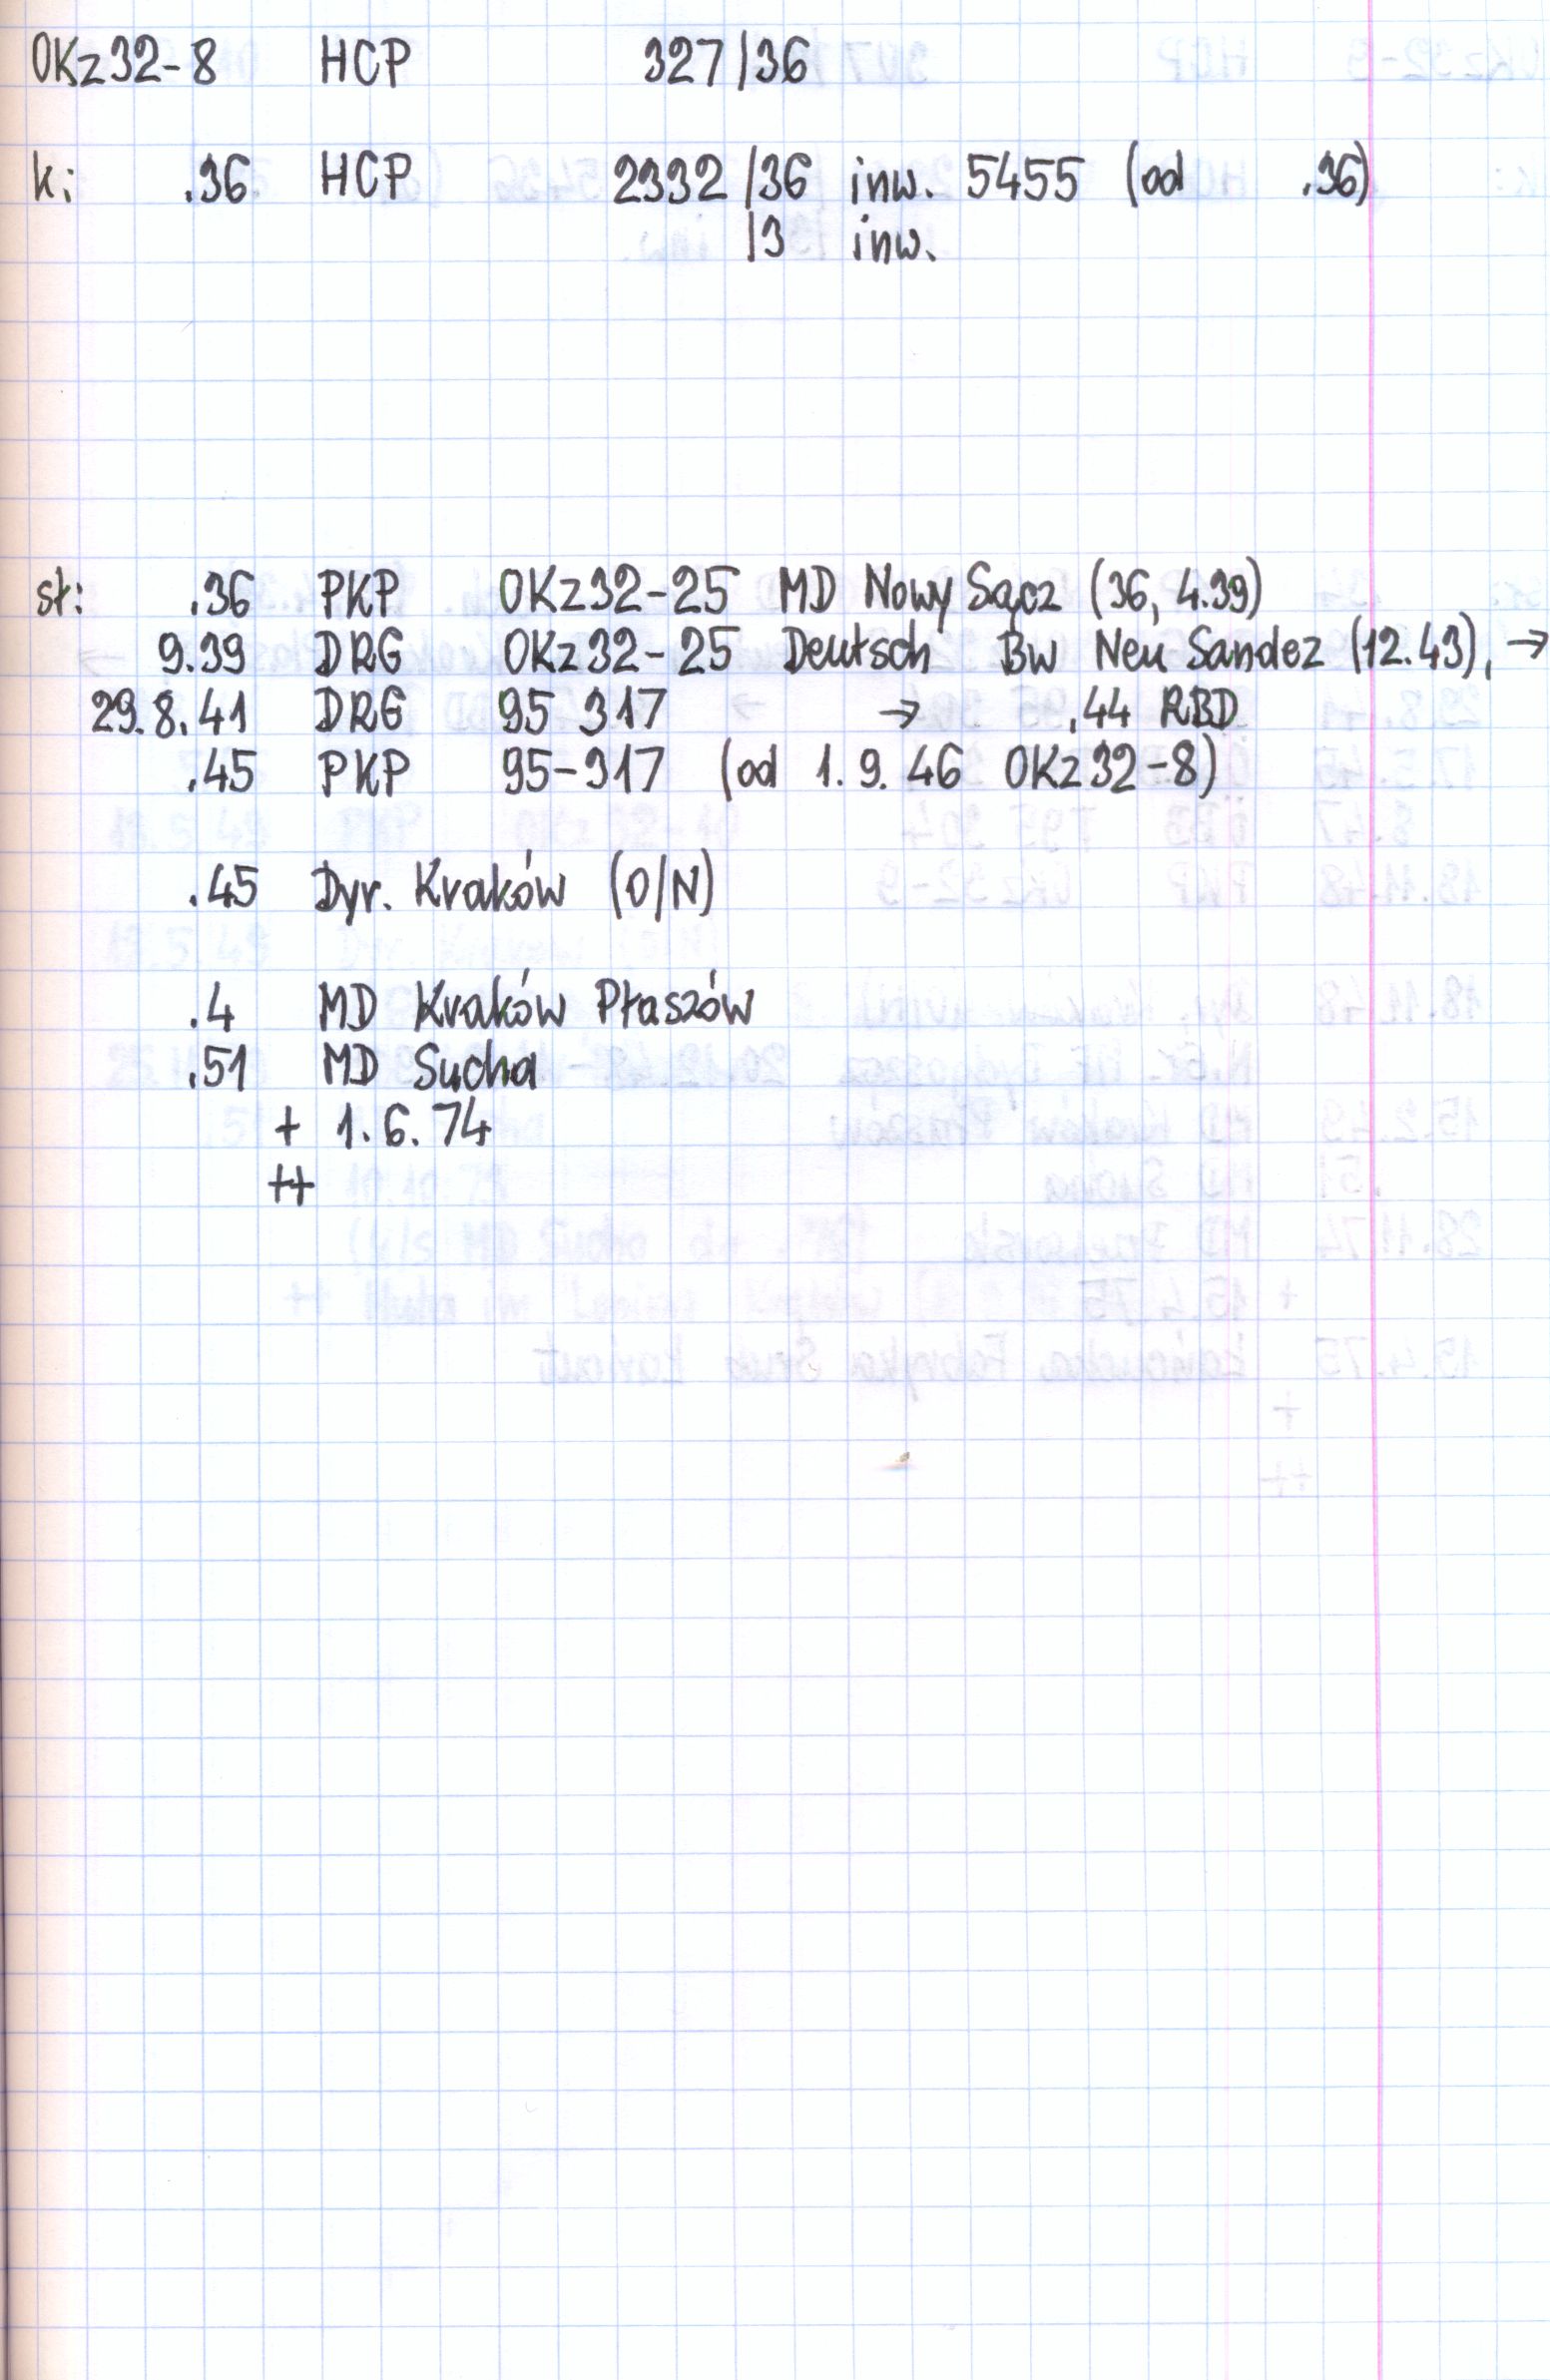 OKz32-8 HCP 327/36
k: .36 HCP 2332/36 inw. 5455 (od .36)
/3 inw.
st: .36 PKP OKz32-25 MD Nowy Sącz (36, 4.39)
9.39 DRG OKz32-25 Deutsch Bw Neu Sandez (12.43), →
29.8.41 DRG 95 317 → .44 RBD
.45 PKP 95-317 (od 1.9.46 OKz32-8)
.45 Dyr. Kraków (O/N)
.4 MD Kraków Płaszów
.51 MD Sucha
+ 1.6.74
++